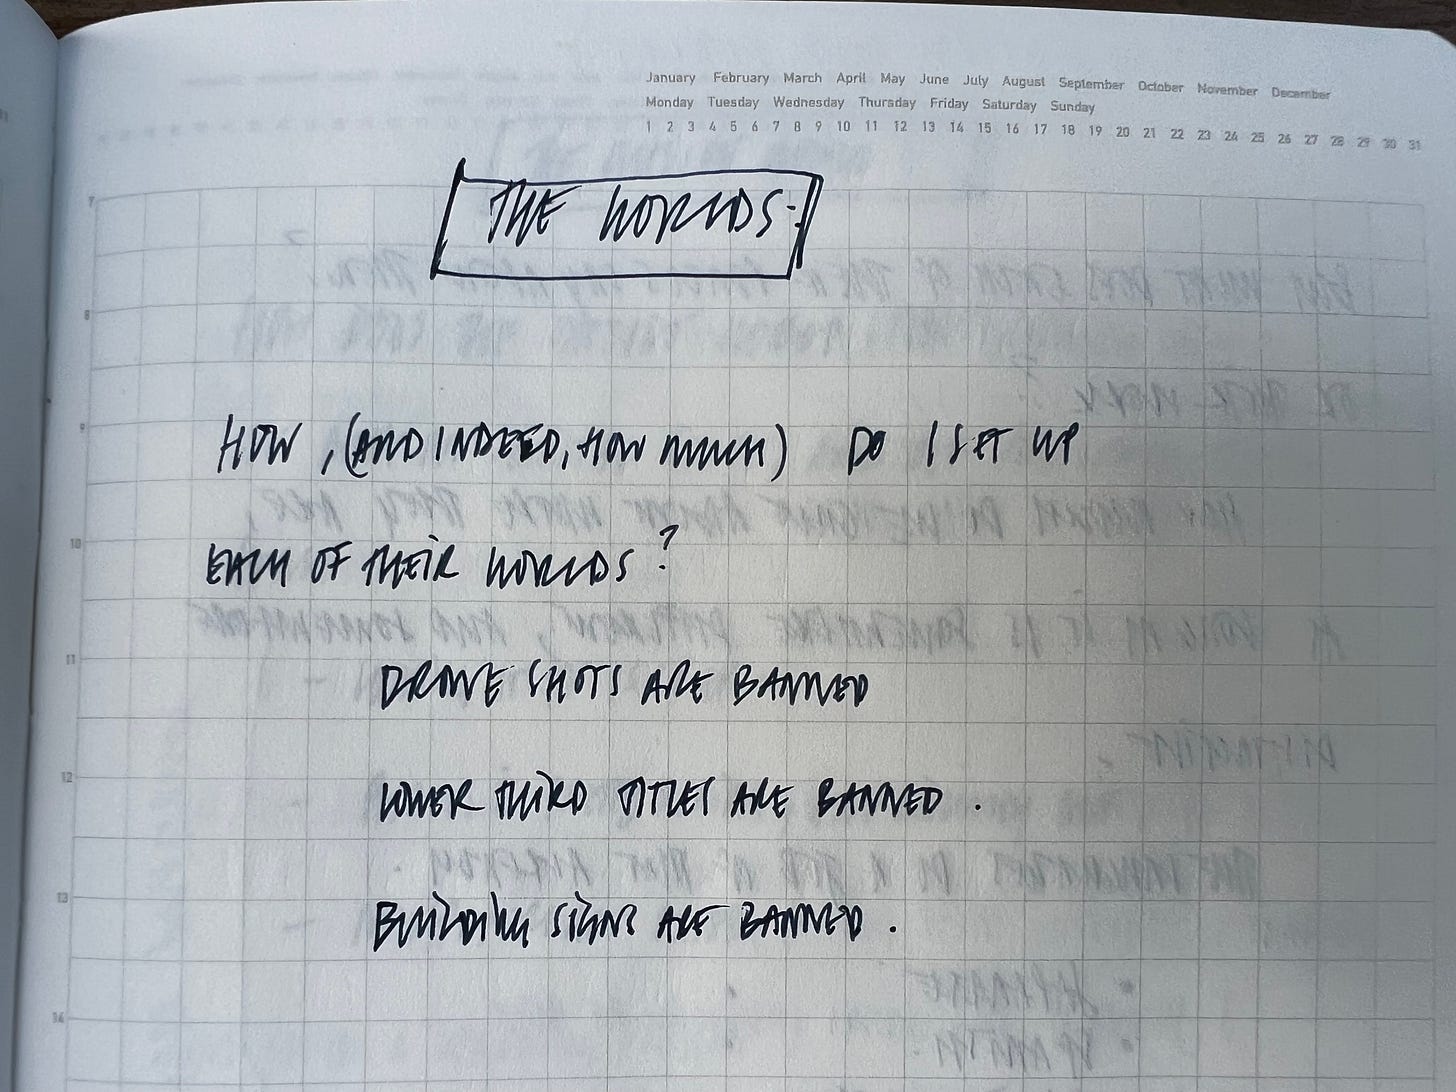 January February March April May June July August September October November December
Monday Tuesday Wednesday Thursday Friday Saturday Sunday
1 2 3 4 5 6 7 8 9 10 11 12 13 14 15 16 17 18 19 20 21 22 23 24 25 26 27 28 29 30 31
THE WORLDS:
7
8
9
HOW, (AND INDEED, HOW MUCH) DO I SET UP
10
EACH OF THEIR WORLDS?
11
DRONE SHOTS ARE BANNED
12
LOWER THIRD TITLES ARE BANNED.
13
BUILDING SIGNS ARE BANNED.
14